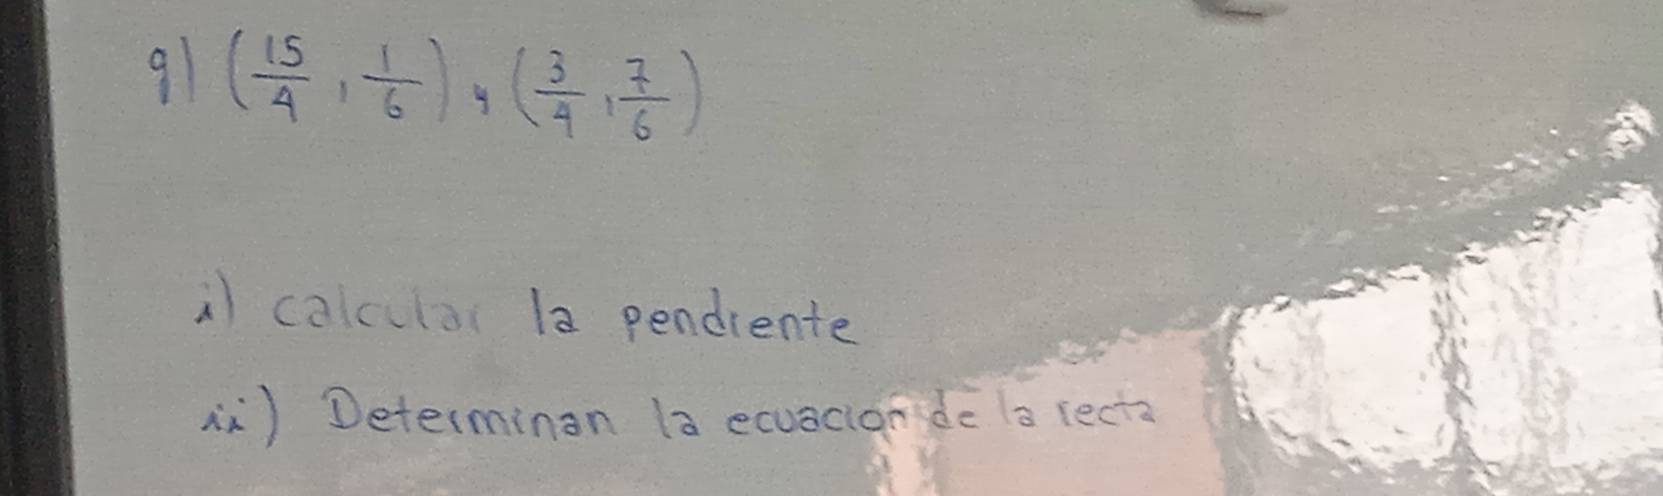 g) (15/4, 1/6) y (3/4, 7/6)
i) calcular la pendiente
ii) Determinan la ecuación de la recta